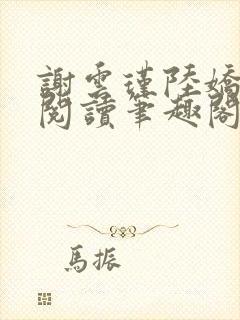 謝雲瑾陸嬌
閱讀筆趣閣
馬振